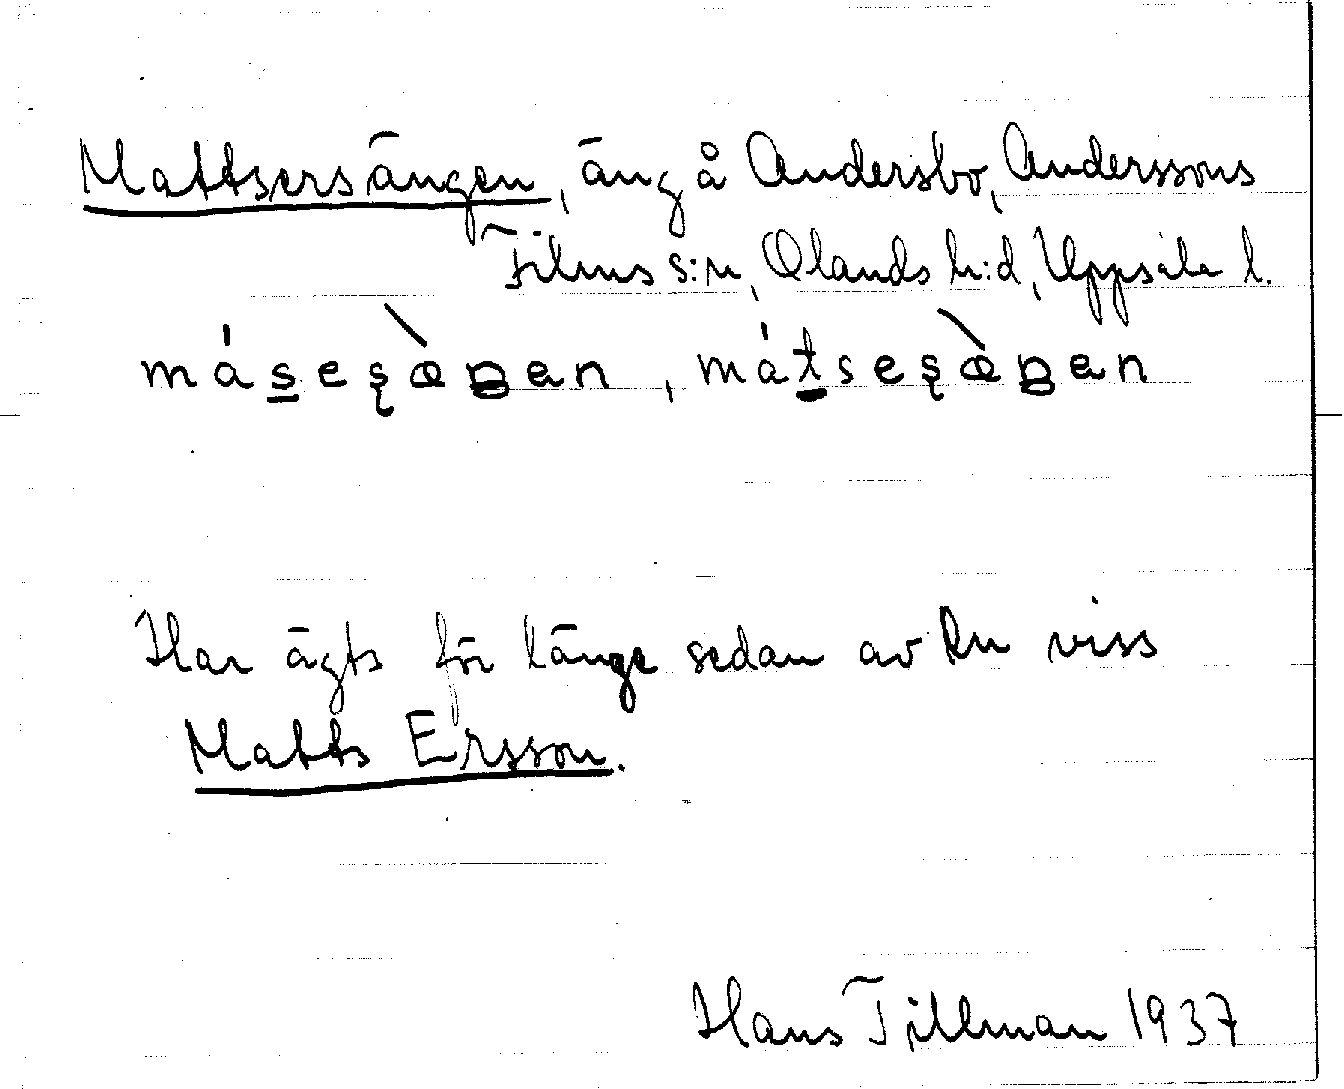 Mattsersängen, äng å Andersbo, Anderssons
Films s:n, Olands h:d, Uppsala l.
máseşæ̀ŋen, mátseşæ̀ŋen
Har ägts för länge sedan av en viss
Matts Ersson.
Hans Tillman 1937